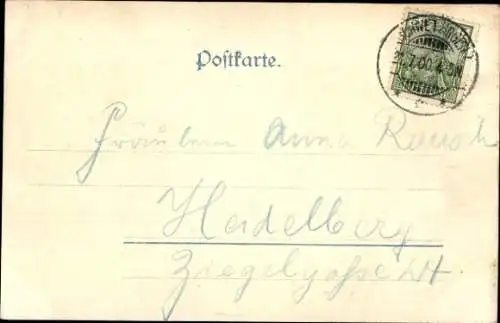 Postkarte.
Fräulein Anna Rausch
Heidelberg
Ziegelgasse